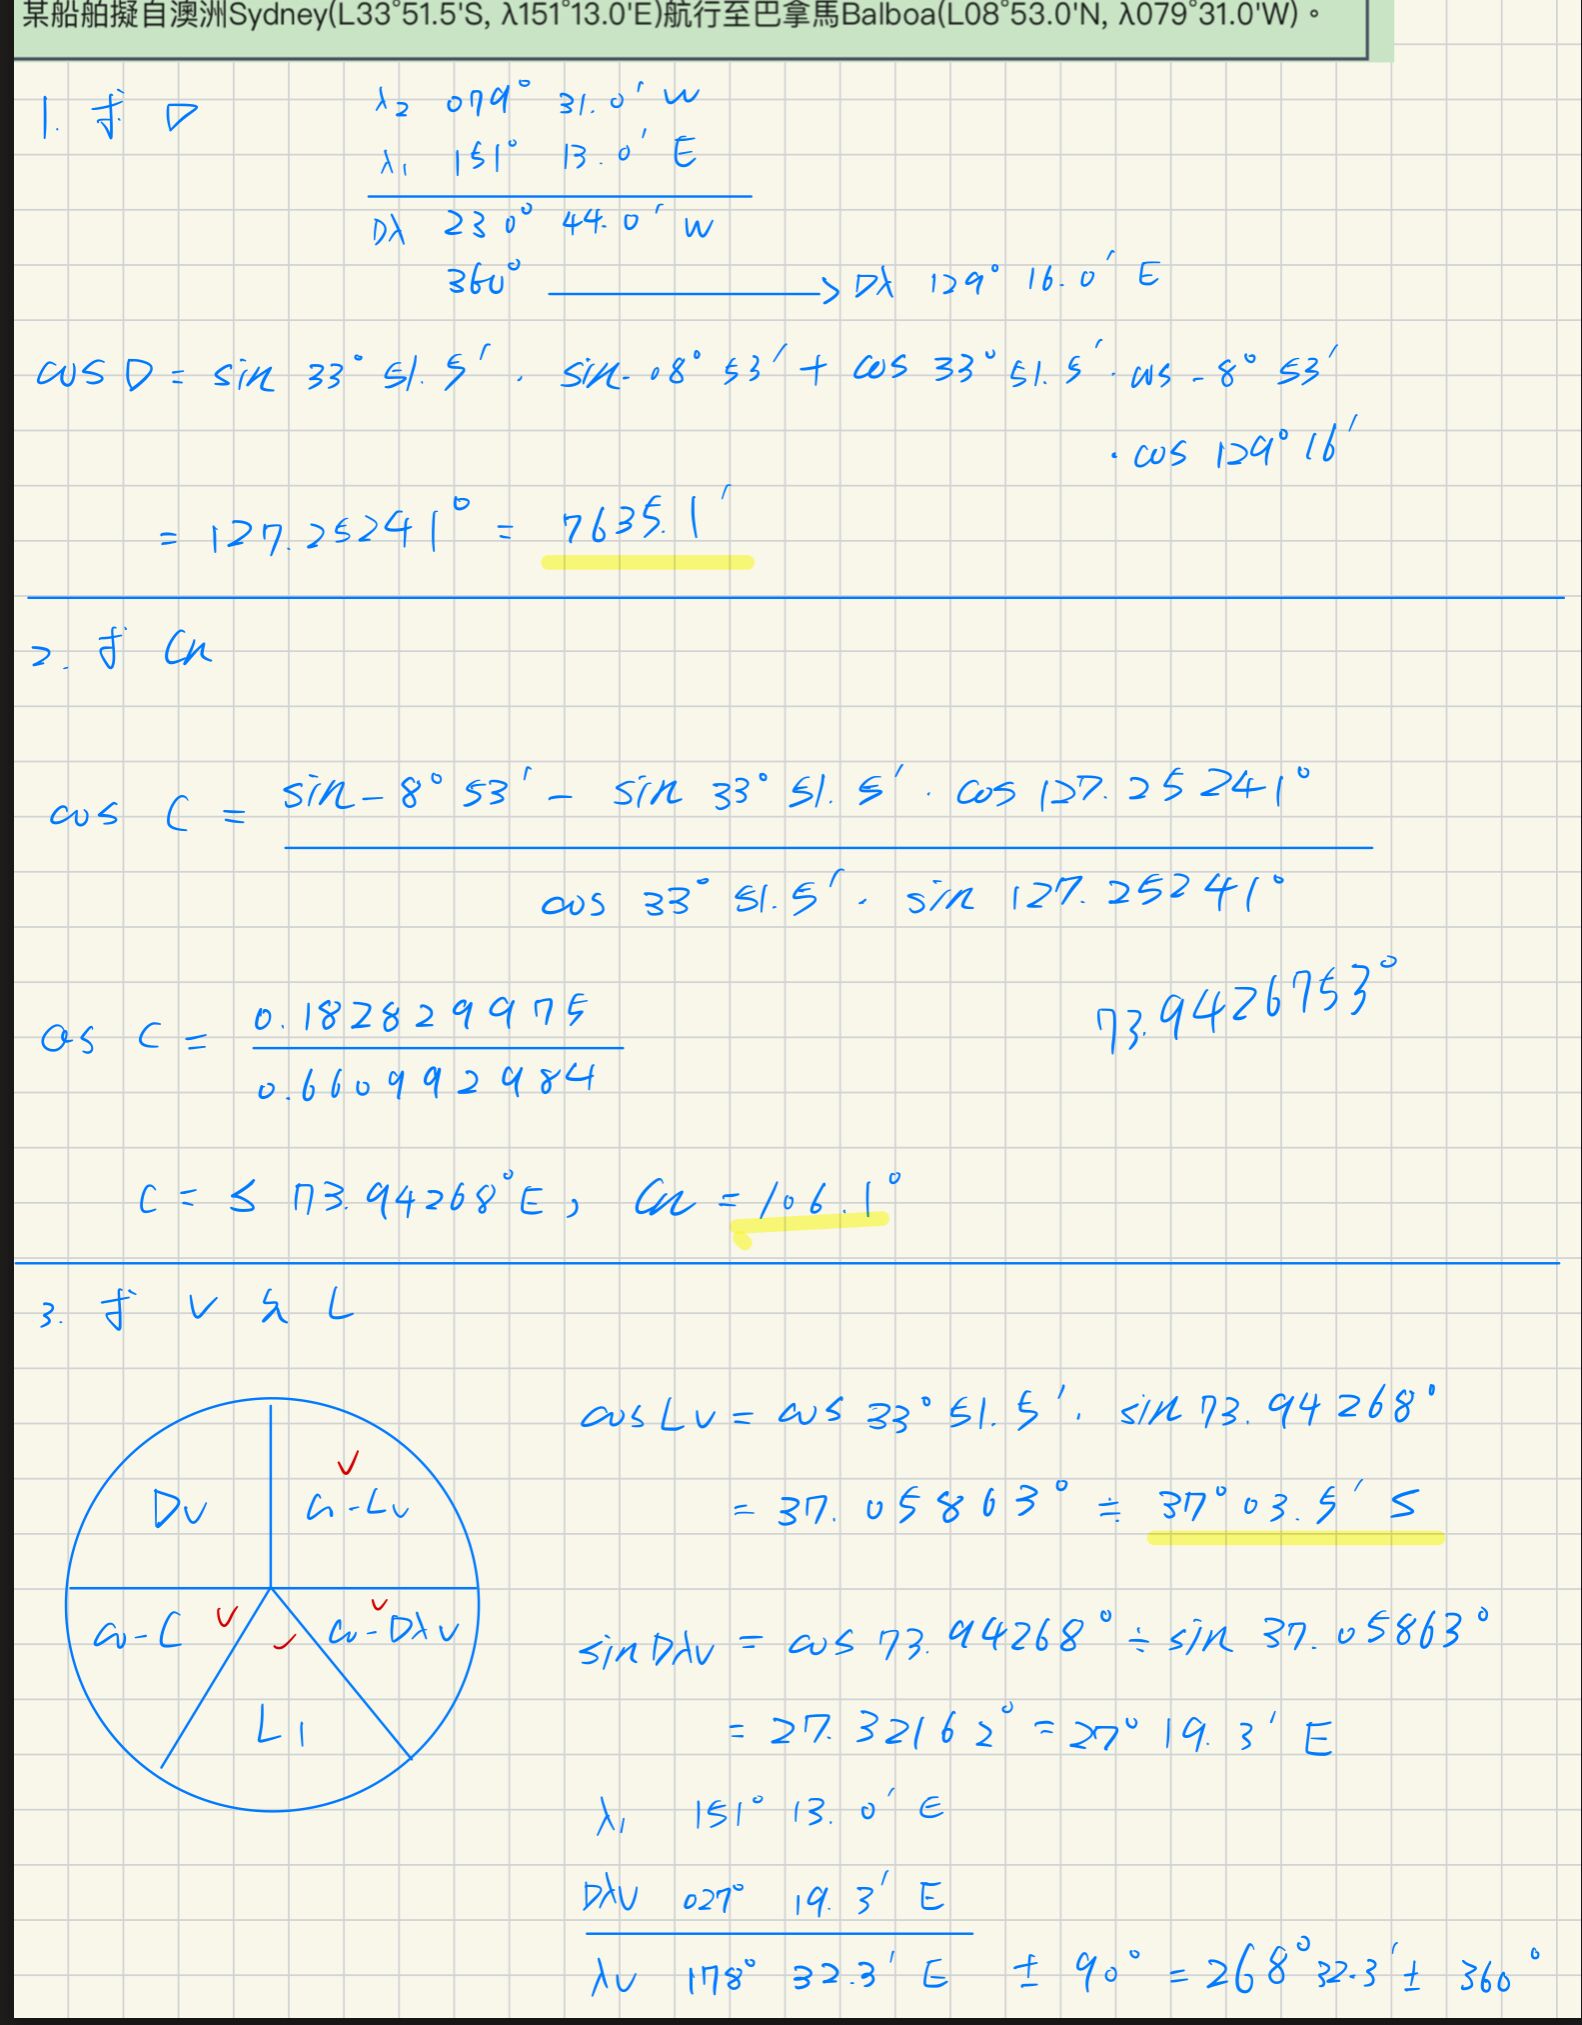 某船舶擬自澳洲Sydney(L33°51.5'S, λ151°13.0'E)航行至巴拿馬Balboa(L08°53.0'N, λ079°31.0'W)。
1. 求 D
λ2 079° 31.0' W
λ1 151° 13.0' E
Dλ 230° 44.0' W
360° → Dλ 129° 16.0' E
cos D = sin 33° 51.5' · sin -08° 53' + cos 33° 51.5' · cos -8° 53'
· cos 129° 16'
= 127.25241° = 7635.1'
2. 求 Cn
cos C = sin -8° 53' - sin 33° 51.5' · cos 127.25241°
cos 33° 51.5' · sin 127.25241°
cos C = 0.182829975
0.6609992984
73.9426753°
C = S 73.94268° E, Cn = 106.1°
3. 求 V 的 L
Dv
co-Lv
co-C
co-Dλv
L1
cos Lv = cos 33° 51.5' · sin 73.94268°
= 37.05863° ≒ 37° 03.5' S
sin Dλv = cos 73.94268° ÷ sin 37.05863°
= 27.32162° = 27° 19.3' E
λ1 151° 13.0' E
Dλv 027° 19.3' E
λv 178° 32.3' E ± 90° = 268° 32.3' ± 360°